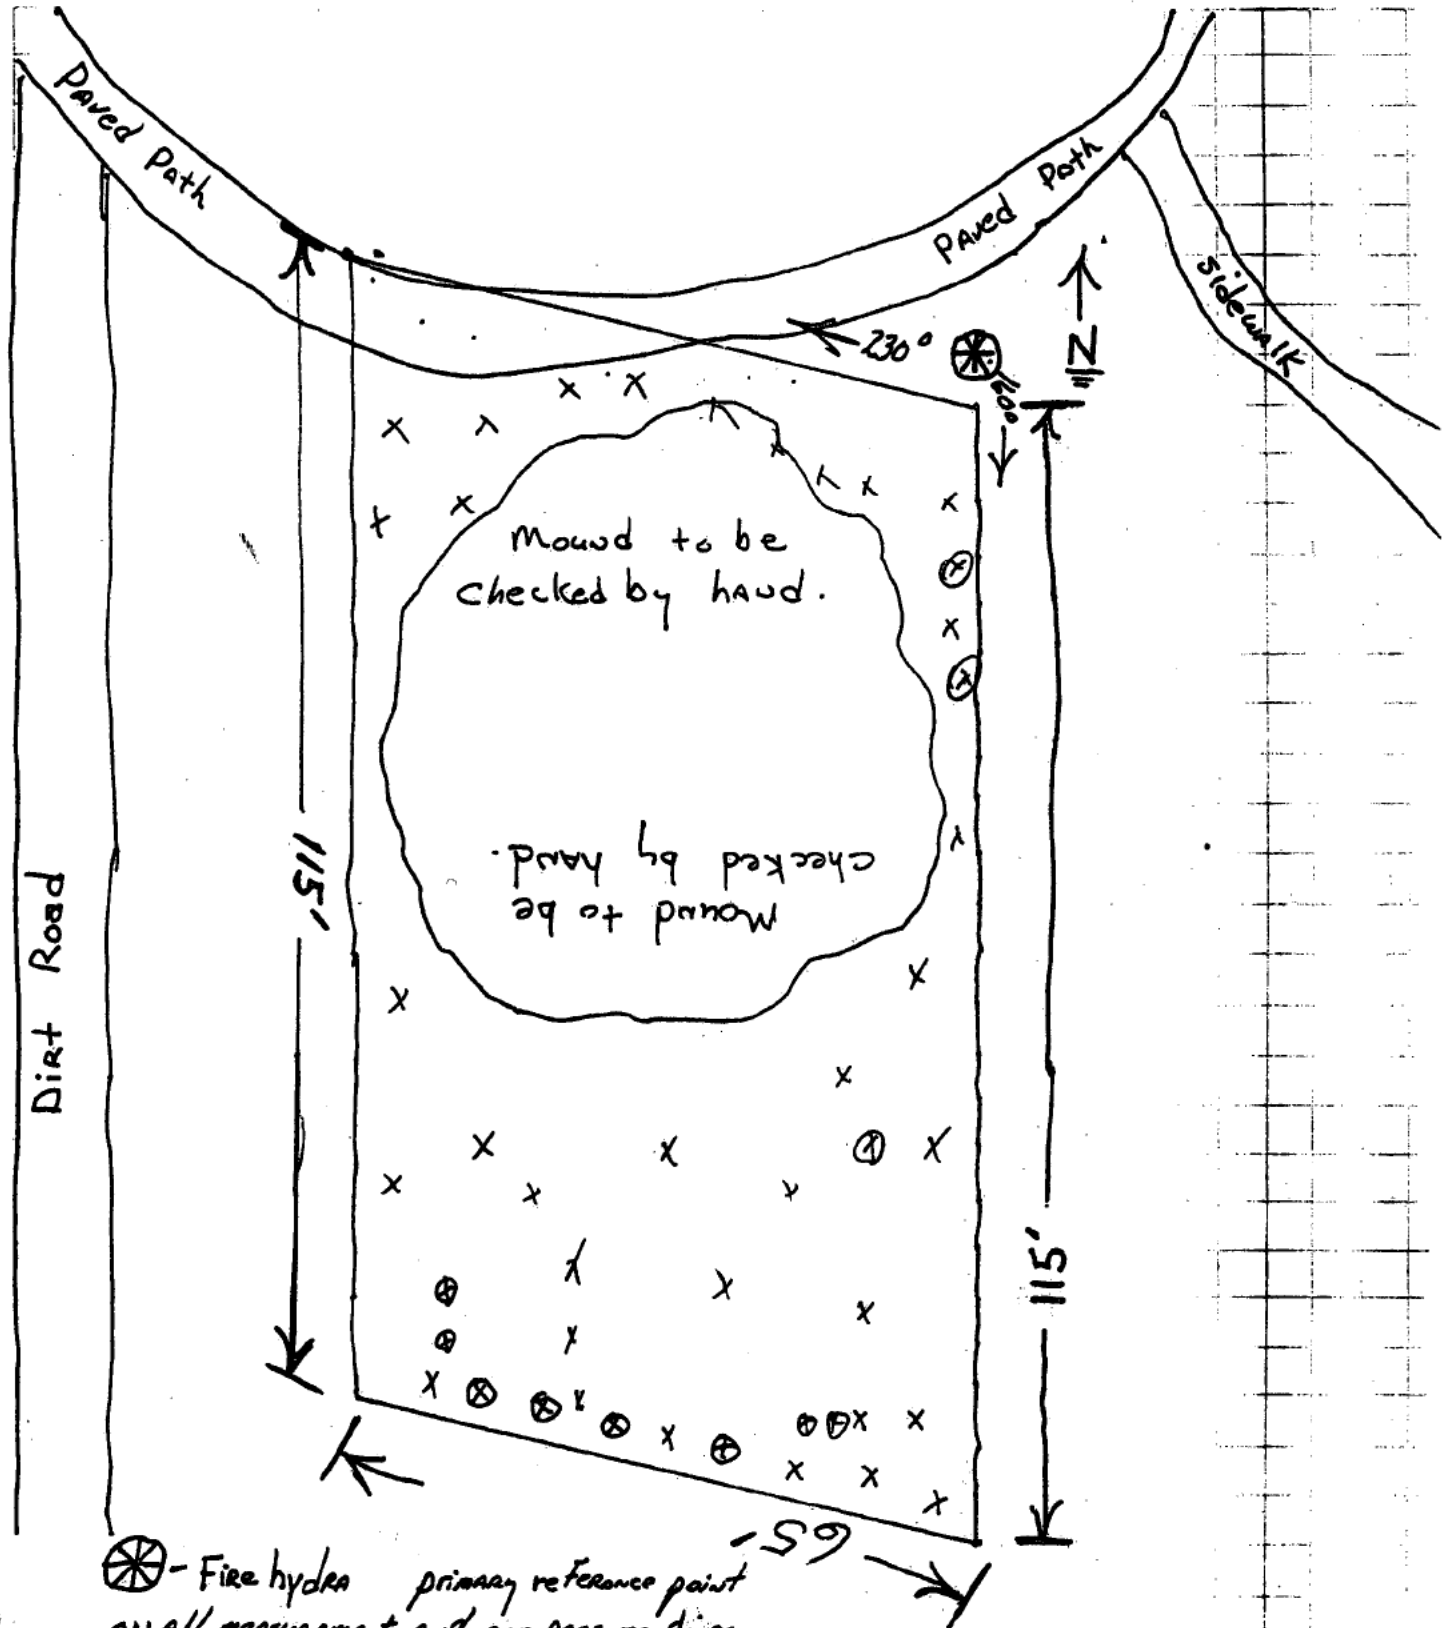 Paved Path
Paved Path
sidewalk
230°
N
160°
Mound to be
checked by hand.
Mound to be
checked by hand.
115'
115'
Dirt Road
65'
- Fire hydra primary reference point
on all